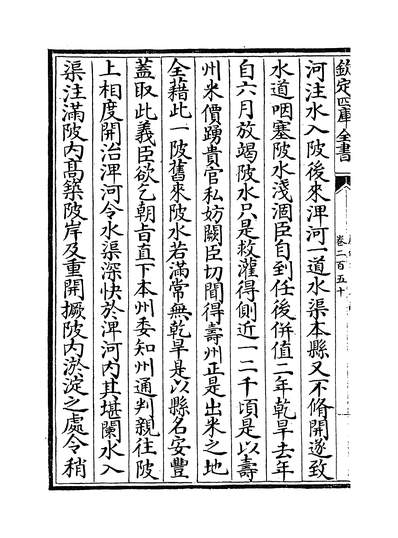 欽定四庫全書
卷二百五十
河注水入陂後來淠河一道水渠本縣又不脩開遂致
水道咽塞陂水淺涸臣自到任後併值二年乾旱去年
自六月放竭陂水只是救灌得側近一二千頃是以壽
州米價踴貴官私妨闕臣切聞得壽州正是出米之地
全藉此一陂舊來陂水若滿常無乾旱是以縣名安豐
蓋取此義臣欲乞朝㫖直下本州委知州通判親往陂
上相度開治淠河令水渠深快於淠河内其堪闌水入
渠注滿陂内髙築陂岸及重開撅陂内淤淀之處令稍